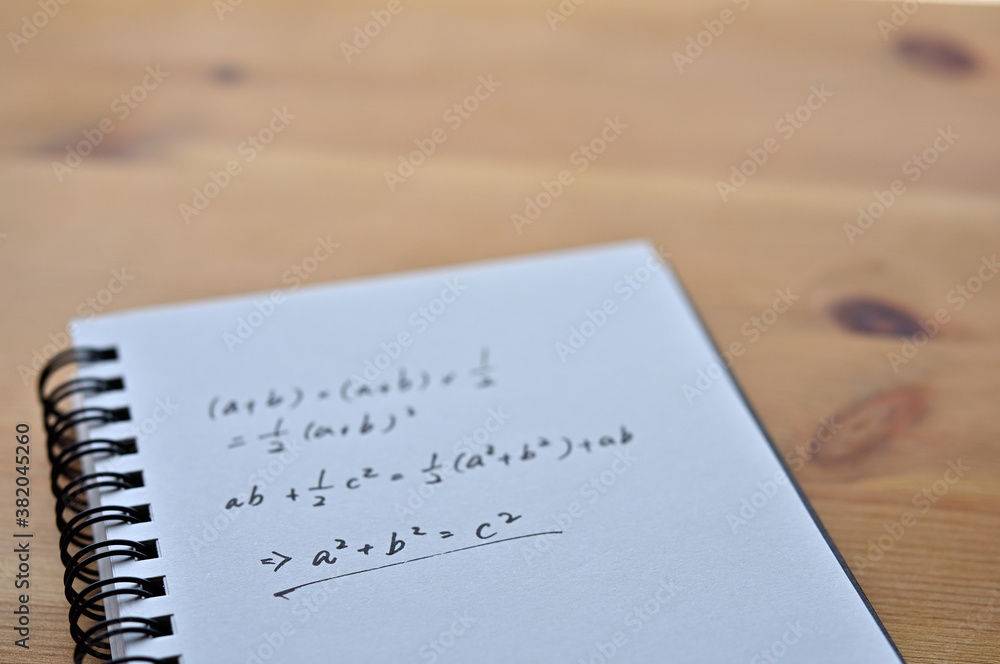 (a+b) × (a+b) × 1/2
= 1/2 (a+b)²
ab + 1/2 c² = 1/2 (a²+b²)+ab
=> a²+b² = c²
Adobe Stock | #382045260
Adobe Stock